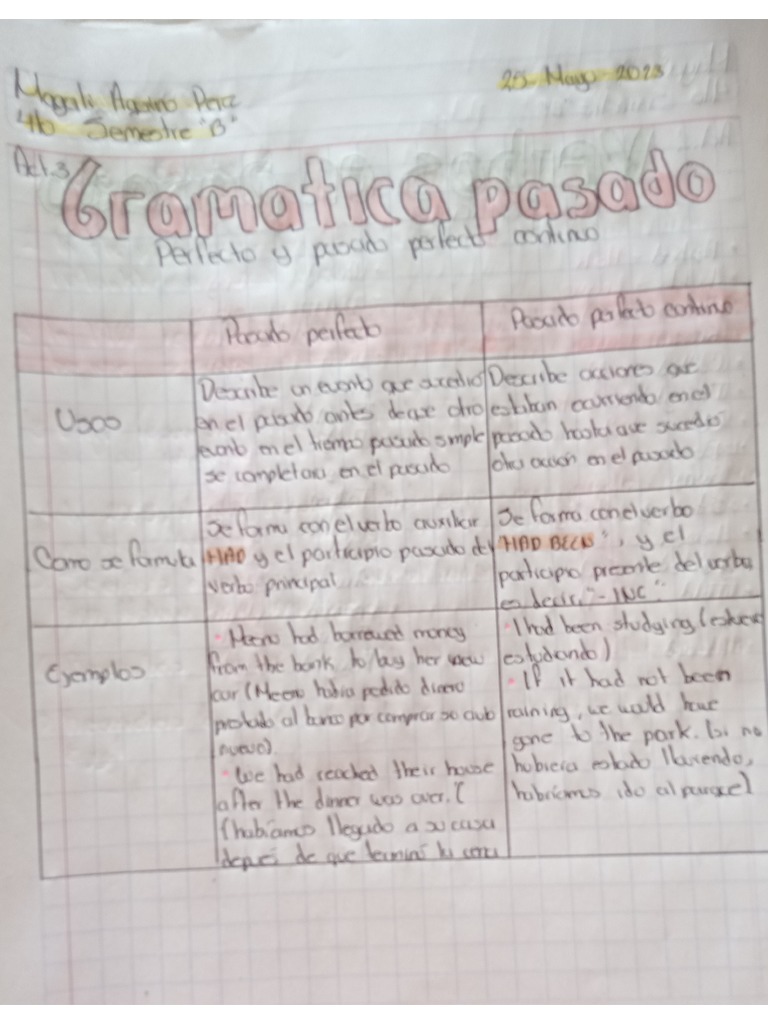 Magali Aquino Perez
25 Mayo 2023
4to Semestre "B"
Act.3
Gramatica pasado
Perfecto y pasado perfecto continuo
Pasado perfecto
Pasado perfecto continuo
Usos
Describe un evento que sucedio
en el pasado antes de que otro
evento en el tiempo pasado simple
se completara en el pasado
Describe acciones que
estaban ocurriendo en el
pasado hasta que sucedio
otra acción en el pasado
Como se formula
Se forma con el verbo auxiliar
HAD y el participio pasado del
verbo principal
Se forma con el verbo
"HAD BEEN", y el
participio presente del verbo
es decir, "-ING"
Ejemplos
Meena had borrowed money
from the bank to buy her new
car (Meena habia pedido dinero
prestado al banco por comprar su
nuevo).
We had reached their house
after the dinner was over. (
(habíamos llegado a su casa
de que terminó la cena
I had been studying (estuve
estudiando)
If it had not been
raining, we would have
gone to the park. (si no
hubiera estado lloviendo,
habriamos ido al parque)